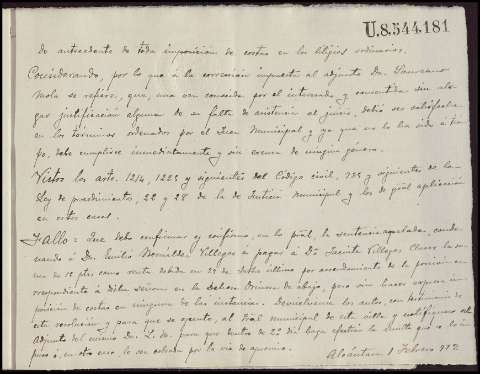 U.8.544.181
de antecedente de toda imposición de costas en los litigios ordinarios.
Considerando, por lo que á la corrección impuesta al adjunto Dn. Laureano
Mola se refiere, que, una vez conocida por el interesado y consentida sin ale-
gar justificación alguna de su falta de asistencia al juicio, debió ser satisfecha
en los términos ordenados por el Juez Municipal y ya que no lo ha sido á tiem-
po, debe cumplirse inmediatamente y sin excusa de ningún género.
Vistos los arts. 1214, 1225 y siguientes del Código civil, y siguientes de la
Ley de procedimientos, 22 y 28 de la de Justicia Municipal y los de gral aplicación
en estos casos.
Fallo: Que debo confirmar y confirmo, en lo pral, la sentencia apelada, conde-
nando á Dn. Emilio Villegas á pagar á Dª Jacinta Villegas la su-
ma de 15 ptas como renta debida en 29 de último por arrendamiento de la porción co-
rrespondiente á dicha señora en la dehesa de abajo, pero sin hacer expresa im-
posición de costas en ninguna de las instancias. Devuélvanse los autos, con testimonio de
esta resolución y para que se ejecute, al Tral municipal de esta villa y notifíquese al
adjunto del mismo Dn. L. M. para que dentro de 2º día haga efectiva la multa que se le im-
puso ó, en otro caso, le sea exigida por la vía de apremio.
Alcántara 1 Febrero 912